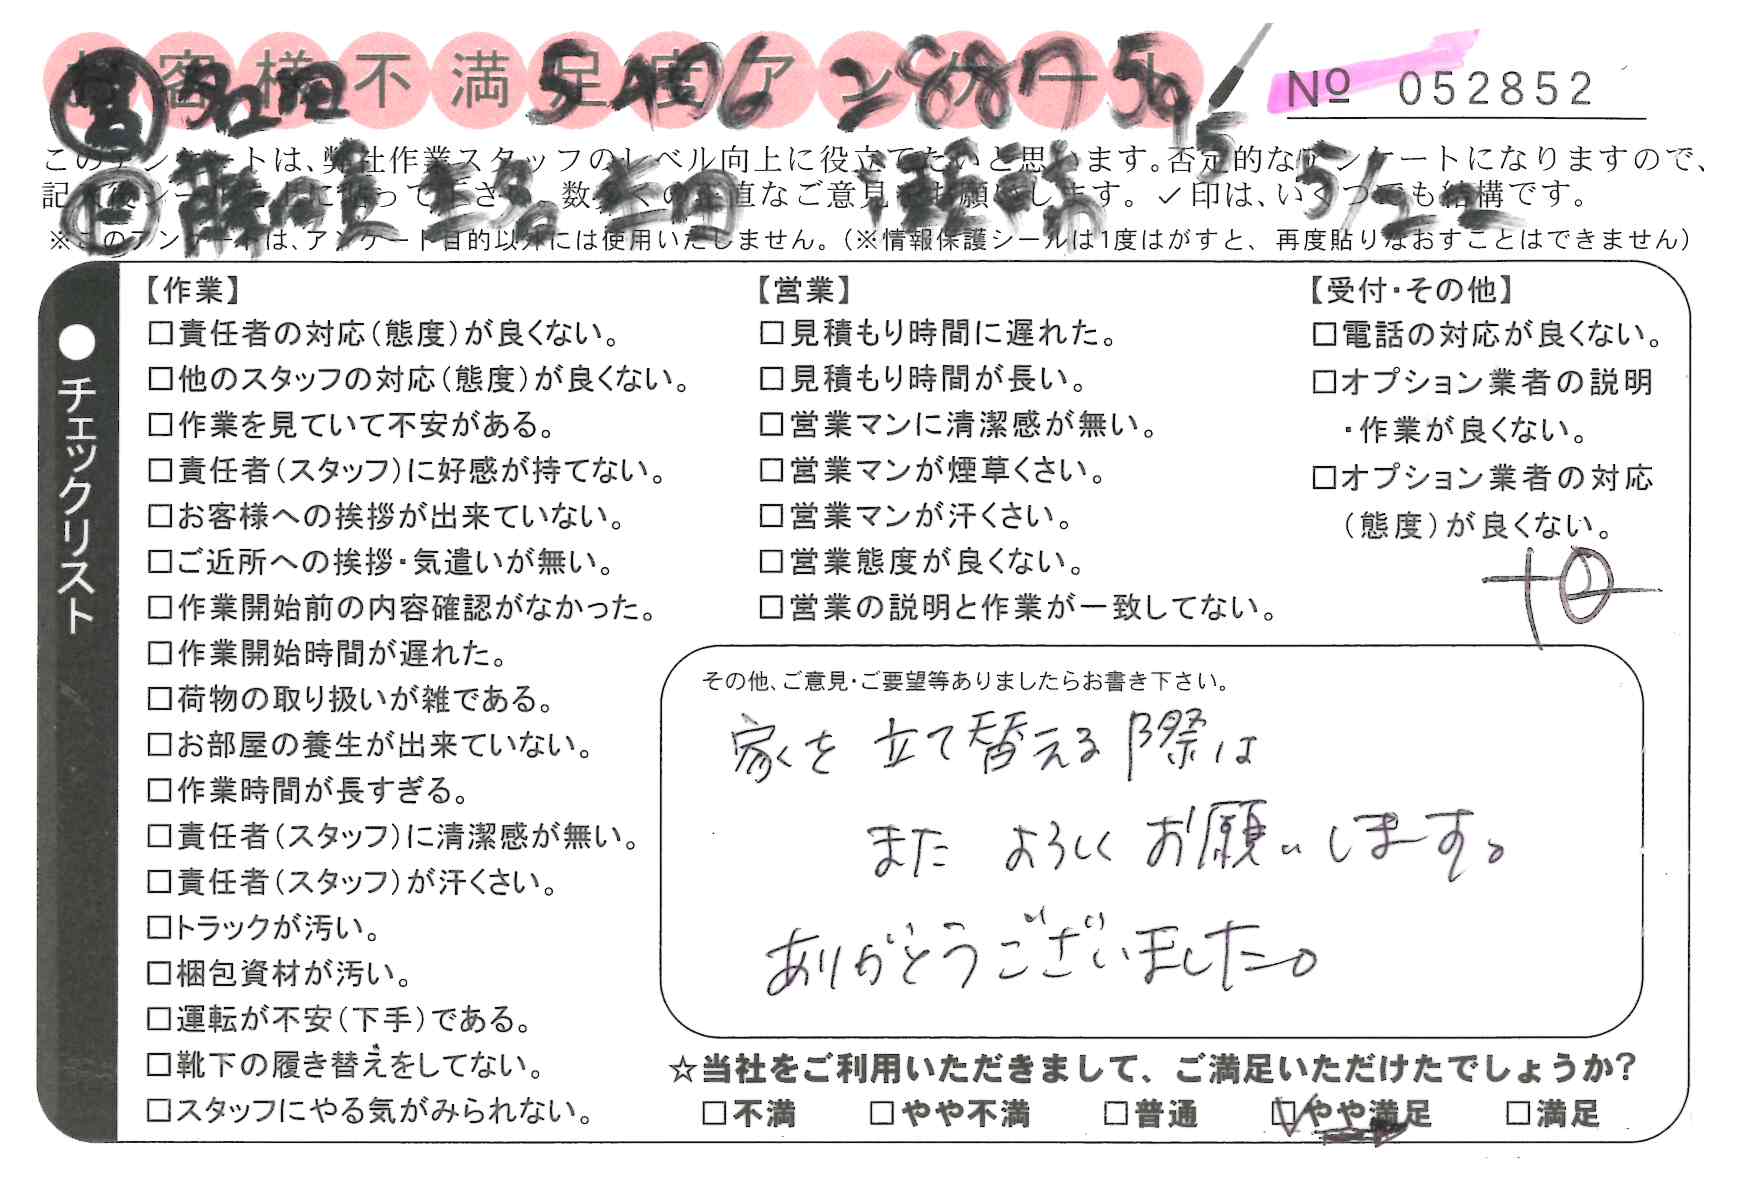 お客様不満足度アンケート
№ 052852
このアンケートは、弊社作業スタッフのレベル向上に役立てたいと思います。否定的なアンケートになりますので、
記入後シールを上に貼って下さい。数多くの正直なご意見をお願いします。✓印は、いくつでも結構です。
※このアンケートは、アンケート目的以外には使用いたしません。（※情報保護シールは1度はがすと、再度貼りなおすことはできません）
●チェックリスト
【作業】
□責任者の対応（態度）が良くない。
□他のスタッフの対応（態度）が良くない。
□作業を見ていて不安がある。
□責任者（スタッフ）に好感が持てない。
□お客様への挨拶が出来ていない。
□ご近所への挨拶・気遣いが無い。
□作業開始前の内容確認がなかった。
□作業開始時間が遅れた。
□荷物の取り扱いが雑である。
□お部屋の養生が出来ていない。
□作業時間が長すぎる。
□責任者（スタッフ）に清潔感が無い。
□責任者（スタッフ）が汗くさい。
□トラックが汚い。
□梱包資材が汚い。
□運転が不安（下手）である。
□靴下の履き替えをしてない。
□スタッフにやる気がみられない。
【営業】
□見積もり時間に遅れた。
□見積もり時間が長い。
□営業マンに清潔感が無い。
□営業マンが煙草くさい。
□営業マンが汗くさい。
□営業態度が良くない。
□営業の説明と作業が一致してない。
【受付・その他】
□電話の対応が良くない。
□オプション業者の説明
・作業が良くない。
□オプション業者の対応
（態度）が良くない。
その他、ご意見・ご要望等ありましたらお書き下さい。
家を立て替える際は
また よろしくお願いします。
ありがとうございました。
☆当社をご利用いただきまして、ご満足いただけたでしょうか？
□不満 □やや不満 □普通 ☑やや満足 □満足